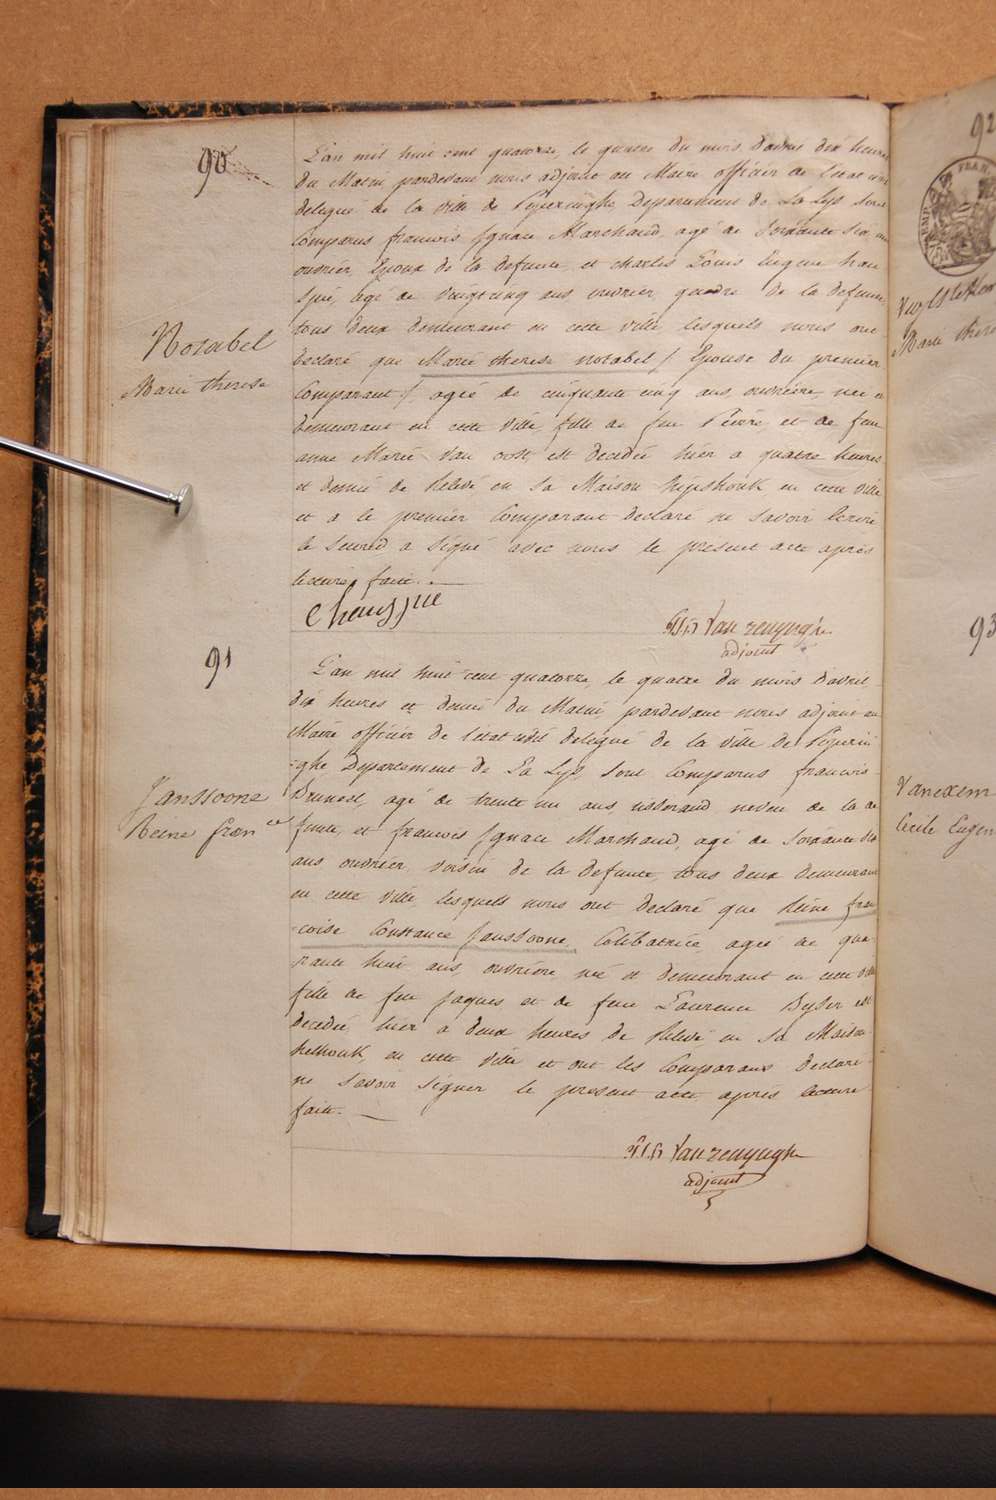 90
L'an mil huit cent quatorze, le quatre du mois d'avril dix heures
du Matin, pardevant nous adjoint au Maire officier de l'état civil
delegué de la ville de Poperinghe Departement de La Lys sont
Comparus francois Ignace Marchand, agé de soixante six ans
ouvrier, Epoux de la defunte, et charles Louis Eugene hau
spie, agé de vingtcinq ans ouvrier, gendre de la defunte
tous deux demeurant en cette ville, lesquels nous ont
declaré que Marie therese notabel / Epouse du premier
Comparant /, agée de cinquante cinq ans, ouvriere, née et
Demeurant en cette ville, fille de feu Pierre, et de feue
anne Marie Van oost, est decedée hier a quatre heures
et demie de Relevé en sa Maison en cette ville
et a le premier Comparant declaré ne savoir Ecrire
le second a signé avec nous le present acte après
lecture faite.
Notabel
Marie therese
Vanrenynghe
adjoint
91
L'an mil huit cent quatorze, le quatre du mois d'avril
dix heures et demie du Matin, pardevant nous adjoint au
Maire officier de l'état civil delegué de la ville de Poperin
=ghe Departement de La Lys, sont Comparus francois
agé de trente un ans, tisserand, neveu de la de
funte, et francois Ignace Marchand, agé de soixante six
ans ouvrier, voisin de la defunte, tous deux demeurant
en cette ville, lesquels nous ont declaré que Reine fran
=coise Constance Janssoone, Celibatrice, agée de qua
rante huit ans, ouvriere, née et demeurant en cette ville
fille de feu Jaques et de feue Laurence est
decedée, hier a deux heures de Relevé en sa Maison
en cette ville et ont les Comparans declaré
ne savoir signer le present acte, après lecture
faite.
Janssoone
Reine francce
Vanrenynghe
adjoint
92
Marie thére
93
Vanexem
Cecile Eugen